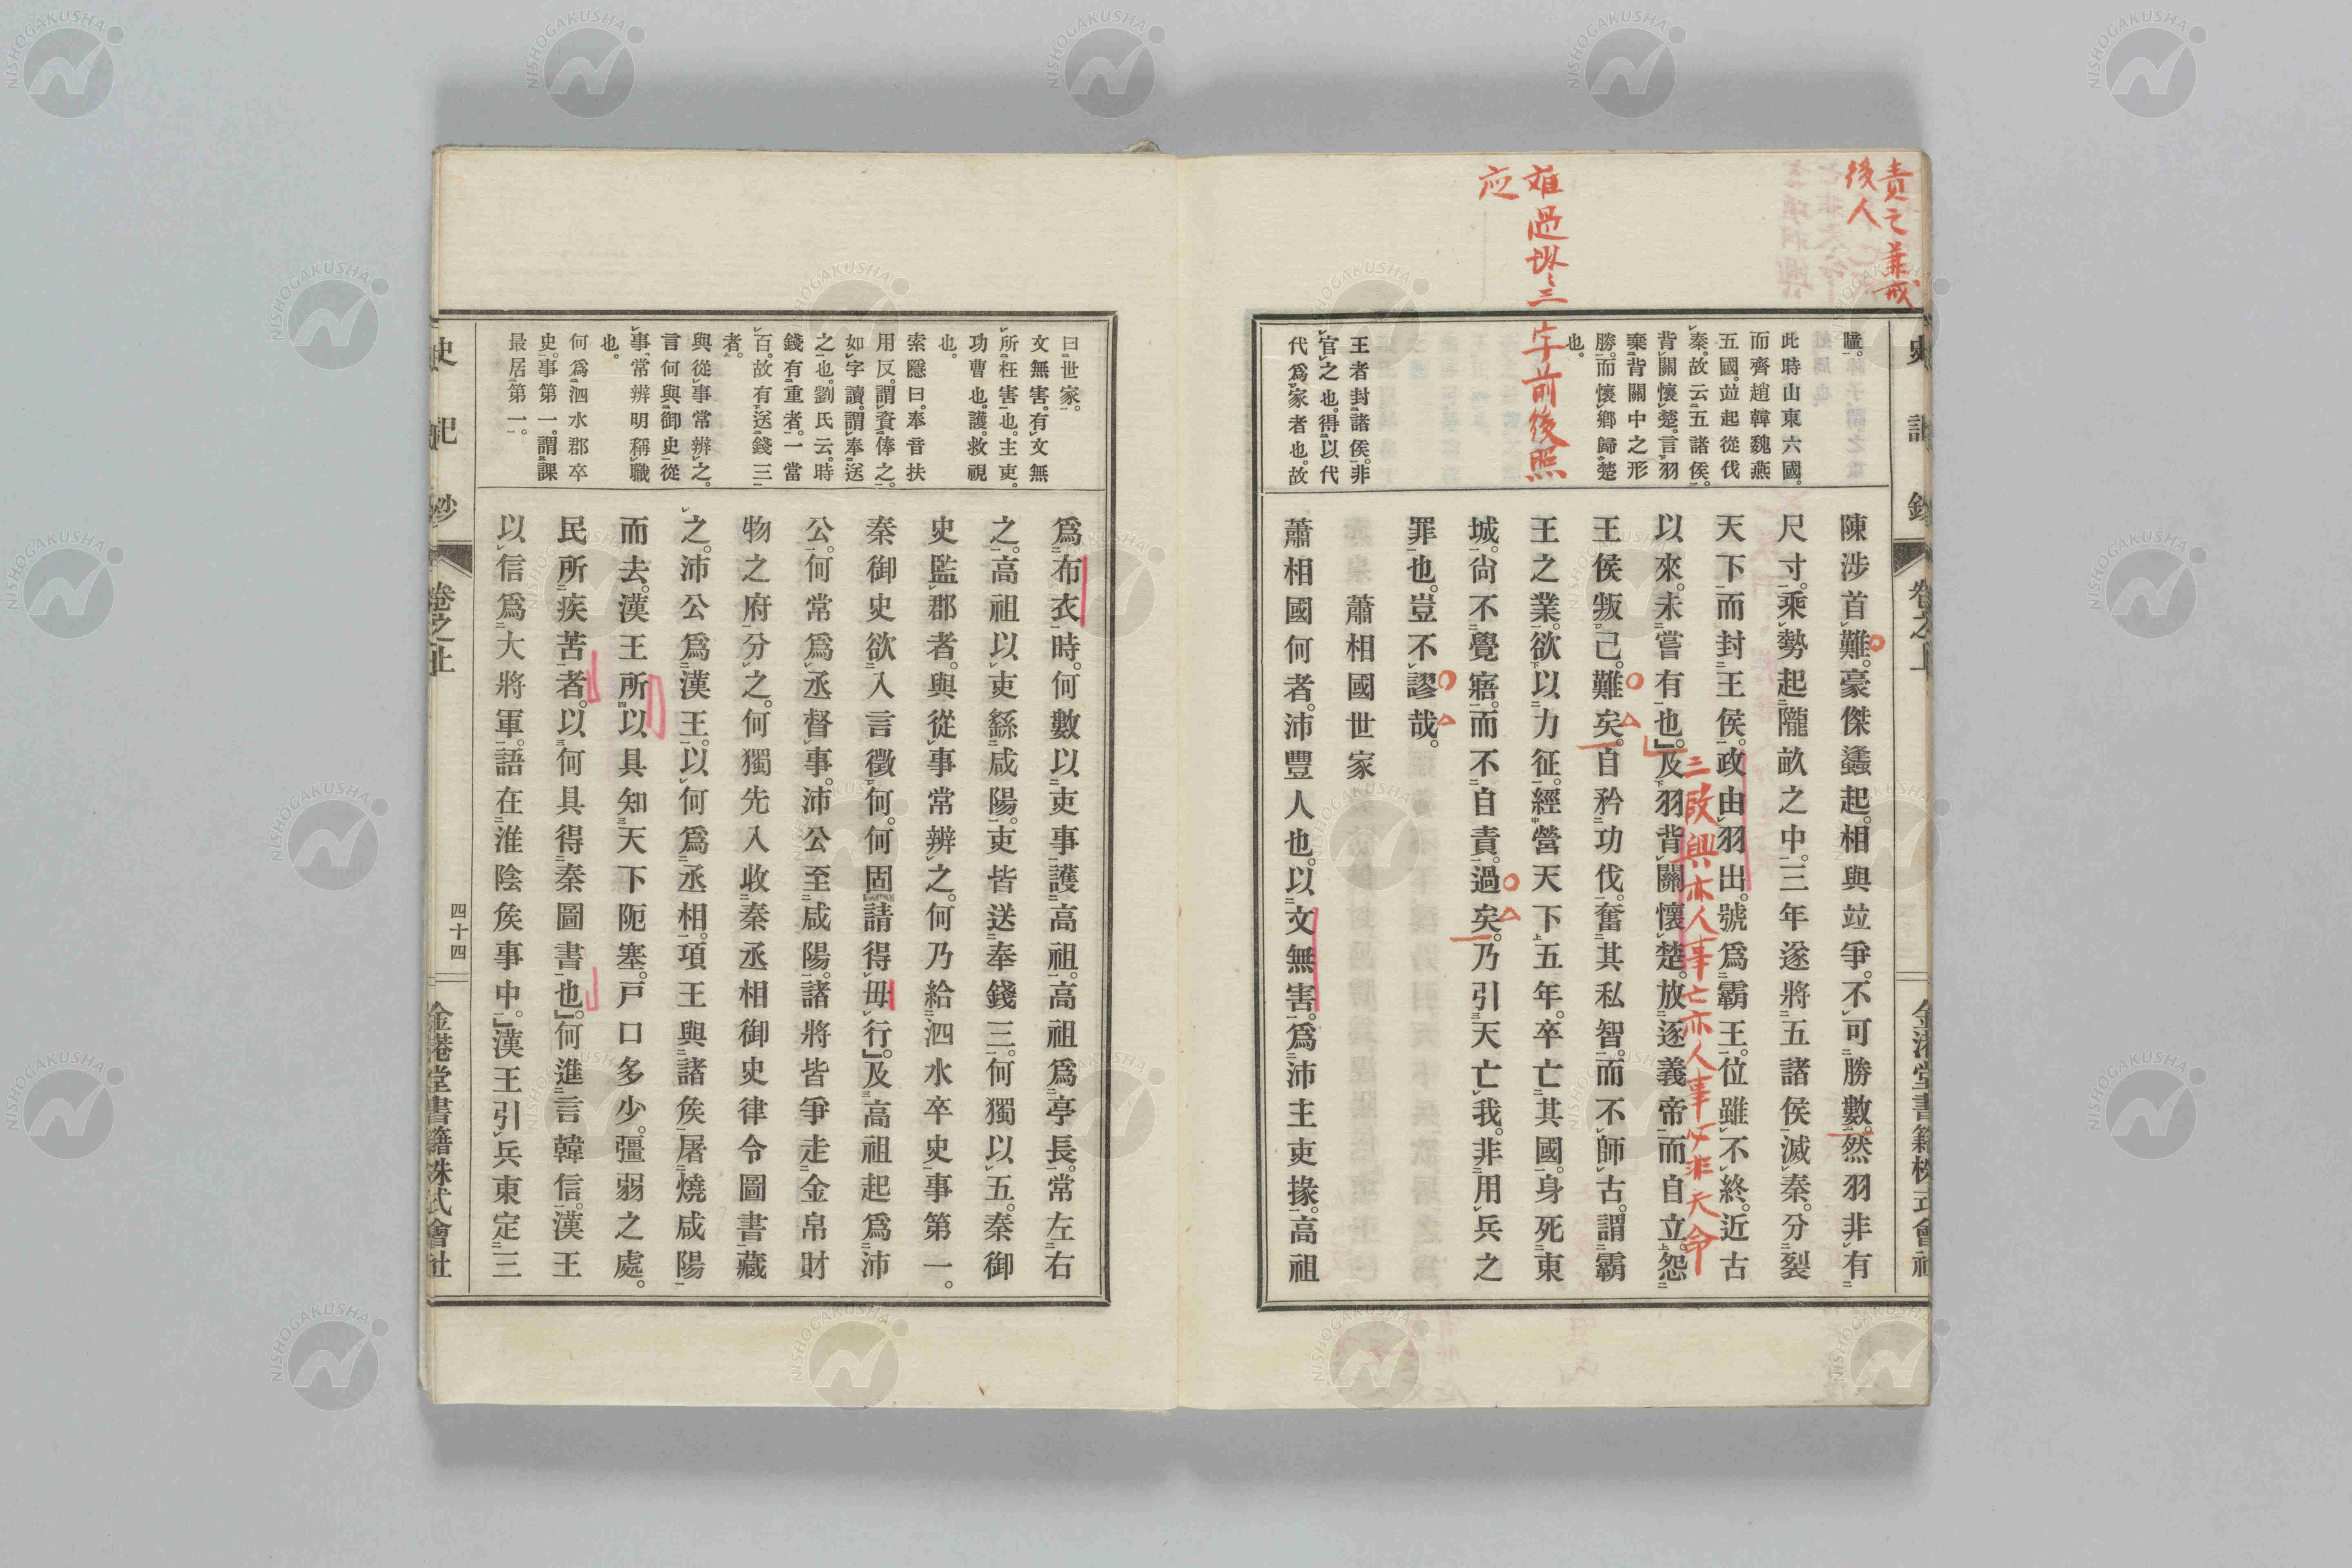 責之兼戒
後人
難過謬三字前後照
应
史記鈔
卷之上
金港堂書籍株式會社
此時山東六國。
而齊趙韓魏燕
五國。竝起從伐
秦。故云五諸侯。
背關懷楚。言羽
棄背關中之形
勝。而懷鄉歸楚
也。
王者封諸侯。非
官之也。得以代
代爲家者也。故
陳涉首難。豪傑蠭起。相與竝爭。不可勝數。然羽非有
尺寸。乘勢起隴畝之中。三年遂將五諸侯滅秦。分裂
天下而封王侯。政由羽出。號爲霸王。位雖不終。近古
以來。未嘗有也。』及羽背關懷楚。放逐義帝而自立。怨
三段興亦人事亡亦人事而非天命
王侯叛己。難矣。自矜功伐。奮其私智。而不師古。謂霸
王之業。欲以力征。經營天下五年。卒亡其國。身死東
城。尙不覺寤。而不自責。過矣。乃引天亡我。非用兵之
罪也。豈不謬哉。
蕭相國世家
蕭相國何者。沛豐人也。以文無害。爲沛主吏掾。高祖
曰世家。
文無害。有文無
所枉害也。主吏。
功曹也。護。救視
也。
索隱曰。奉音扶
用反。謂資俸之。
如字讀。謂奉送
之也。劉氏云。時
錢有重者。一當
百。故有送錢三
者。
與從事常辨之。
言何與御史從
事。常辨明稱職
也。
何爲泗水郡卒
史。事第一。謂課
最居第一。
爲布衣時。何數以吏事護高祖。高祖爲亭長。常左右
之。高祖以吏繇咸陽。吏皆送奉錢三。何獨以五。秦御
史監郡者。與從事常辨之。何乃給泗水卒史事第一。
秦御史欲入言徵何。何固請得毋行。』及高祖起爲沛
公。何常爲丞督事。沛公至咸陽。諸將皆爭走金帛財
物之府分之。何獨先入收秦丞相御史律令圖書藏
之。沛公爲漢王。以何爲丞相。項王與諸侯屠燒咸陽
而去。漢王所以具知天下阨塞。戶口多少。彊弱之處。
民所疾苦者。以何具得秦圖書也。』何進言韓信。漢王
以信爲大將軍。語在淮陰侯事中。』漢王引兵東定三
史記鈔
卷之上
四十四
金港堂書籍株式會社
NISHOGAKUSHA